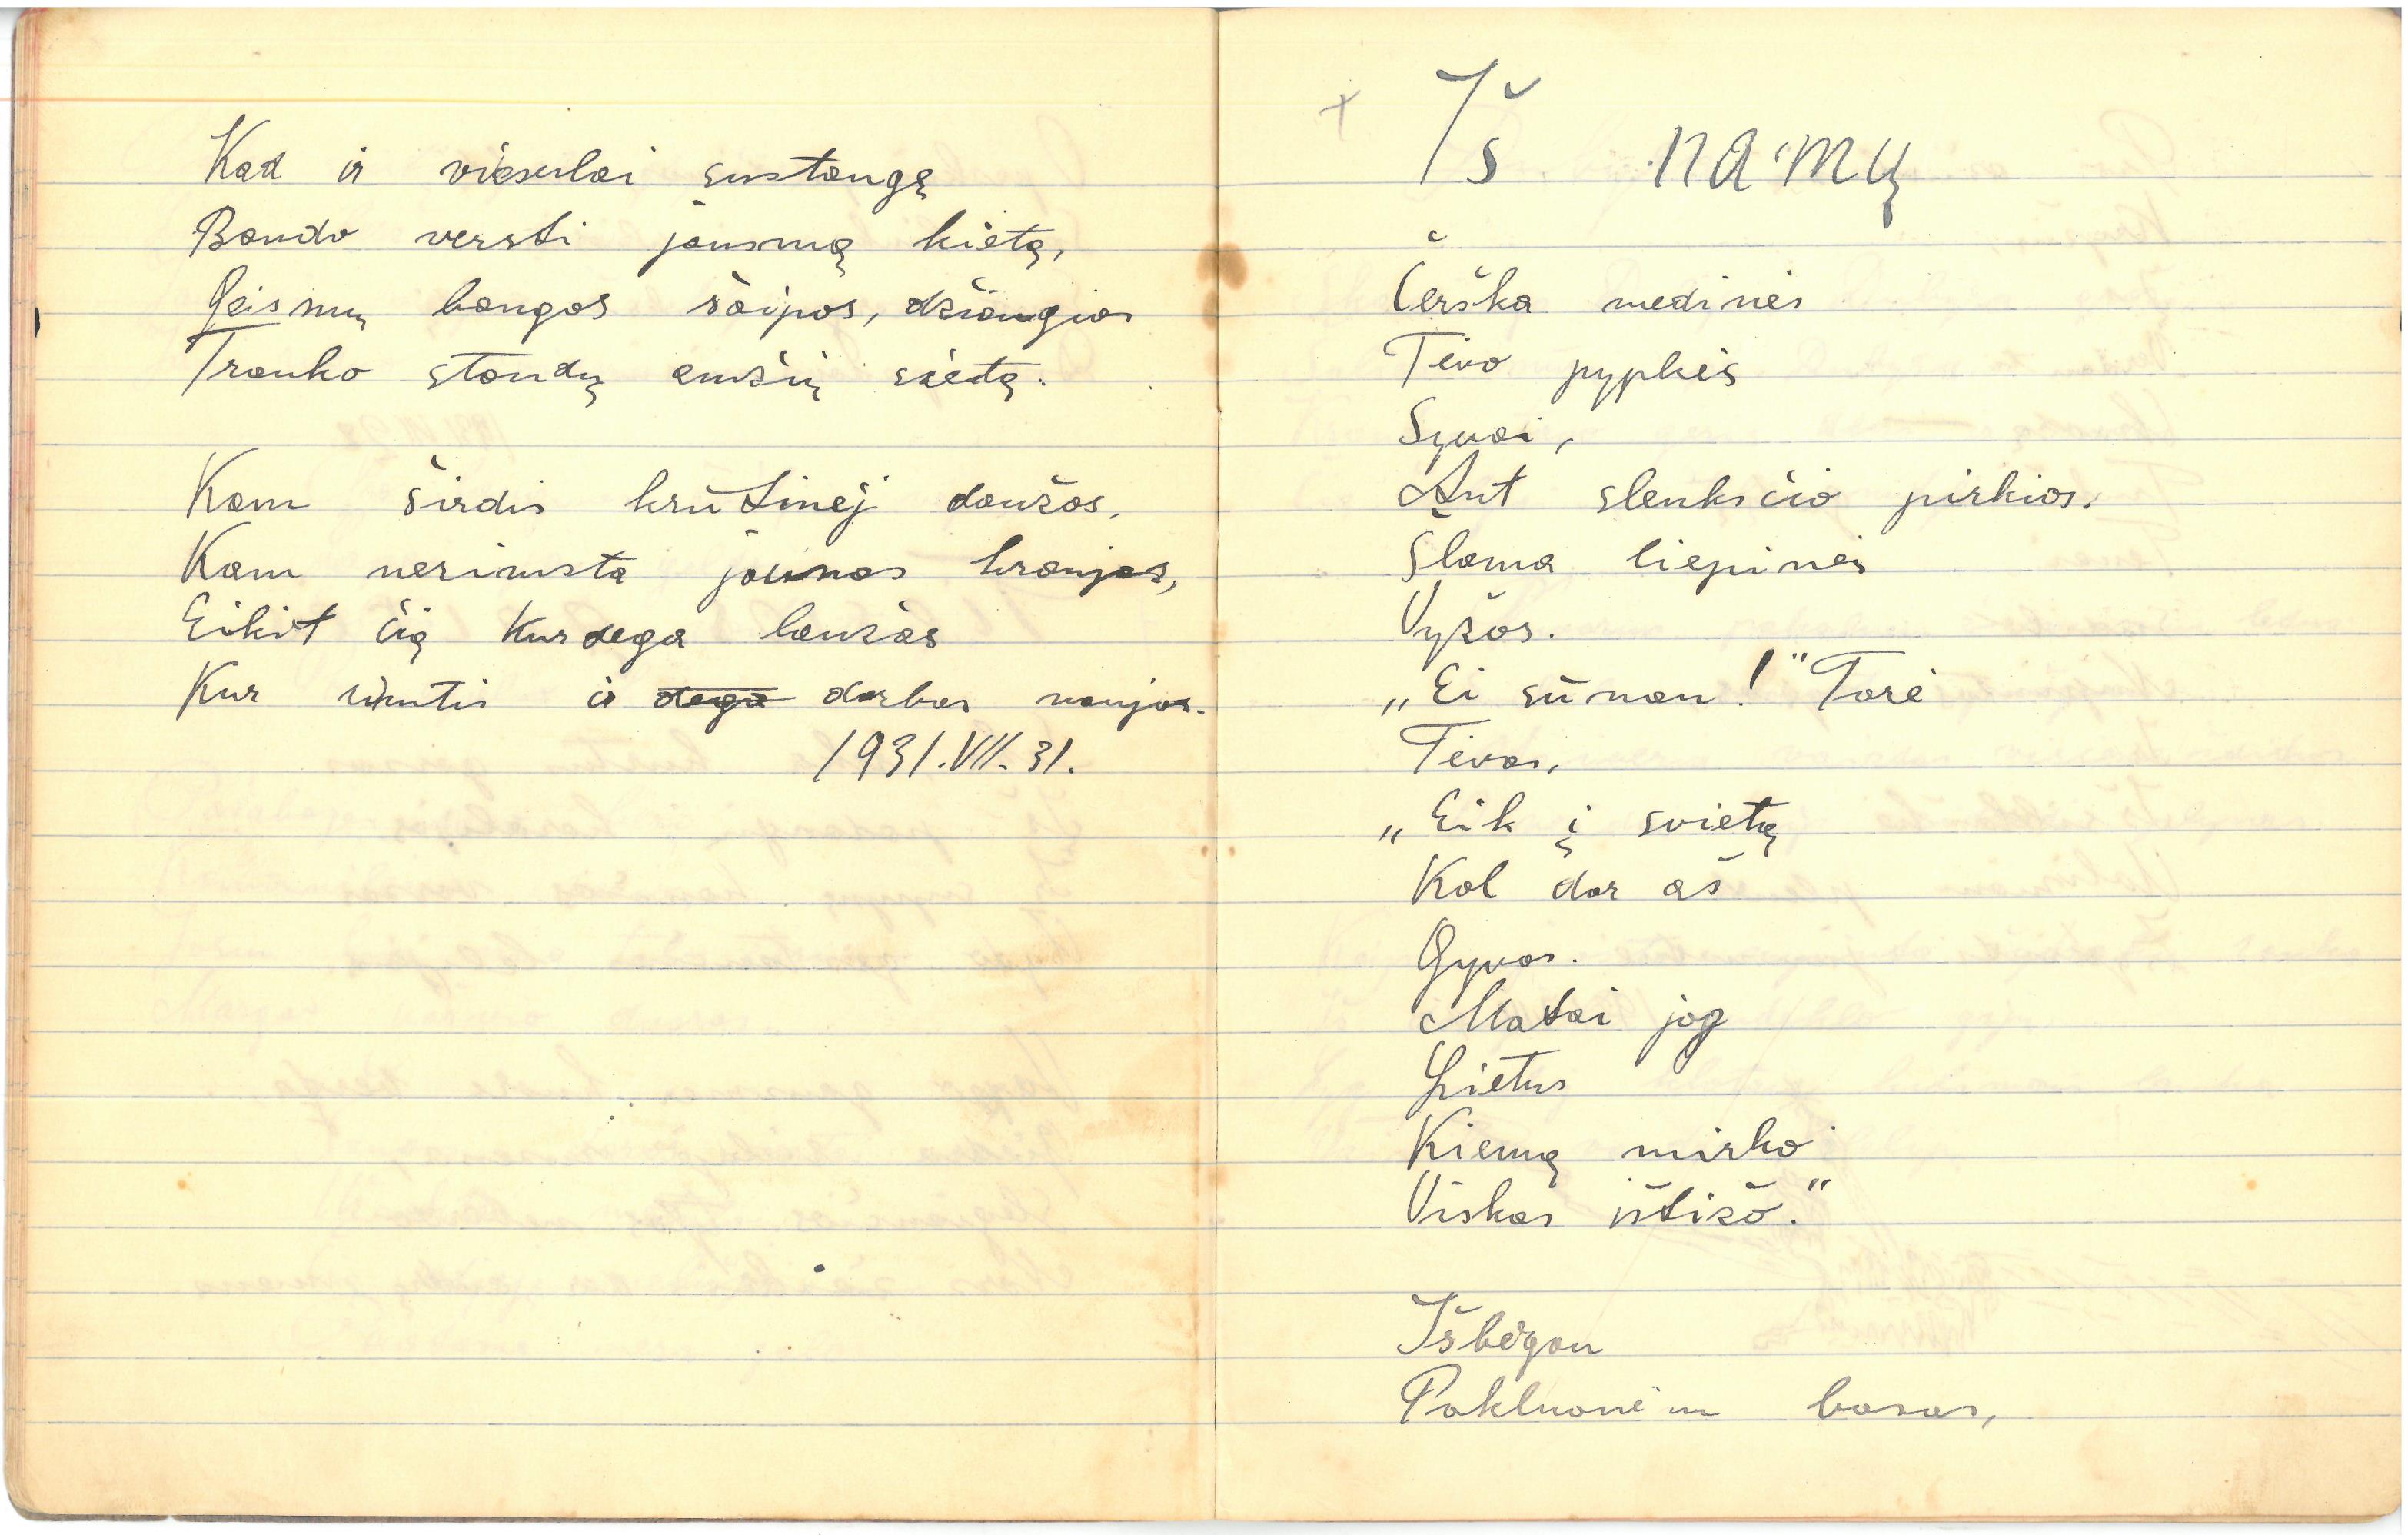 Kad ir viesulai sustangę
Bando versti jausmą kietą,
Geismų bangos šaipos, džiaugias
Tranko standų amžių sietą.
Kam širdis krūtinėj daužos,
Kam nerimsta jaunas kraujas,
Eikit čia kur dega laužas
Kur rimtis ir dega darbas naujas.
1931.VII.31.
+ Iš namų
Čerška medinės
Tėvo pypkės
Syvai,
Ant slenksčio pirkios.
Šlama liepinės
Vyžos.
„Ei sūnau!" Tarė
Tėvas,
„Eik į svietą
Kol dar aš
Gyvas.
Matai jog
Lietus
Kiemą mirko
Viskas ištižo."
Išbėgau
Pakluonėm basas,